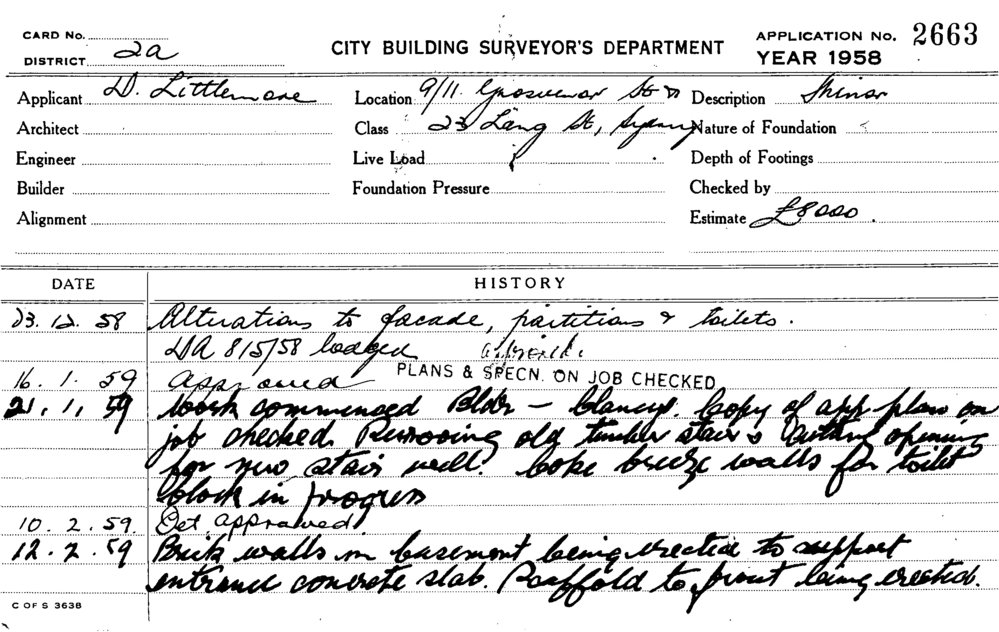 CARD No.
DISTRICT 2a
CITY BUILDING SURVEYOR'S DEPARTMENT
APPLICATION No. 2663
YEAR 1958
Applicant D. Littlemore
Location 9/11 Grosvenor St &
Description Minor
Architect
Class 23 Lang St, Sydney
Nature of Foundation
Engineer
Live Load
Depth of Footings
Builder
Foundation Pressure
Checked by
Alignment
Estimate £8000.
DATE HISTORY
23.12.58 Alterations to facade, partitions & toilets.
DA 815/58 lodged approved.
16.1.59 Approved PLANS & SPECN. ON JOB CHECKED
21.1.59 Work commenced Bldr - Clancys. Copy of app plan on
job checked. Removing old timber stair & cutting opening
for new stair well. Coke breeze walls for toilet
block in progress
10.2.59. Det approved
12.2.59 Brick walls in basement being erected to support
entrance concrete slab. Scaffold to front being erected.
C OF S 3638